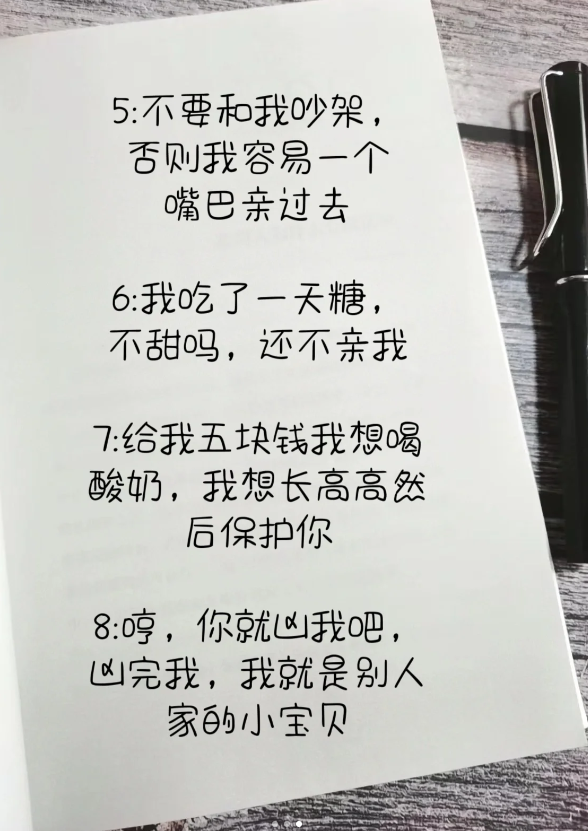 5:不要和我吵架，
否则我容易一个
嘴巴亲过去
6:我吃了一天糖，
不甜吗，还不亲我
7:给我五块钱我想喝
酸奶，我想长高高然
后保护你
8:哼，你就凶我吧，
凶完我，我就是别人
家的小宝贝